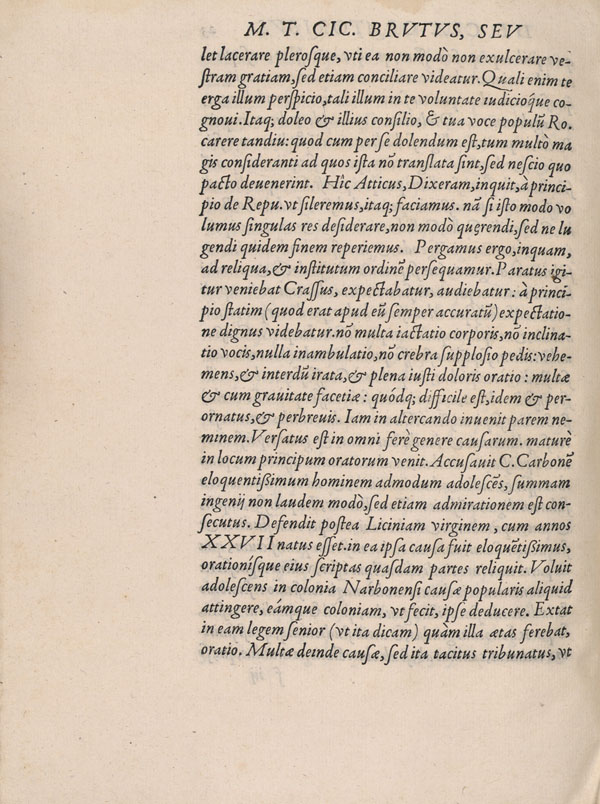 M. T. CIC. BRVTVS, SEV
let lacerare plerosque, vti ea non modò non exulcerare ve-
stram gratiam, sed etiam conciliare videatur. Quali enim te
erga illum perspicio, tali illum in te voluntate iudicioq́ue co-
gnoui. Itaq; doleo & illius consilio, & tua voce populū Ro.
carere tandiu: quod cum per se dolendum est, tum multò ma
gis consideranti ad quos ista nō translata sint, sed nescio quo
pacto deuenerint. Hîc Atticus, Dixeram, inquit, à princi-
pio de Repu. vt sileremus, itaq; faciamus. nā si isto modo vo
lumus singulas res desiderare, non modò quęrendi, sed ne lu
gendi quidem finem reperiemus. Pergamus ergo, inquam,
ad reliqua, & institutum ordinē persequamur. Paratus igi-
tur veniebat Crassus, expectabatur, audiebatur: à princi-
pio statim (quod erat apud eū semper accuratū) expectatio-
ne dignus videbatur. nō multa iactatio corporis, nō inclina-
tio vocis, nulla inambulatio, nō crebra supplosio pedis: vehe-
mens, & interdū irata, & plena iusti doloris oratio: multæ
& cum grauitate facetiæ: quódq; difficile est, idem & per-
ornatus, & perbreuis. Iam in altercando inuenit parem ne-
minem. Versatus est in omni ferè genere causarum. maturè
in locum principum oratorum venit. Accusauit C. Carbonē
eloquentißimum hominem admodum adolescēs, summam
ingenij non laudem modò, sed etiam admirationem est con-
secutus. Defendit postea Liciniam virginem, cum annos
XXVII natus esset. in ea ipsa causa fuit eloquētißimus,
orationísque eius scriptas quasdam partes reliquit. Voluit
adolescens in colonia Narbonensi causæ popularis aliquid
attingere, eámque coloniam, vt fecit, ipse deducere. Extat
in eam legem senior (vt ita dicam) quàm illa ætas ferebat,
oratio. Multæ deinde causæ, sed ita tacitus tribunatus, vt